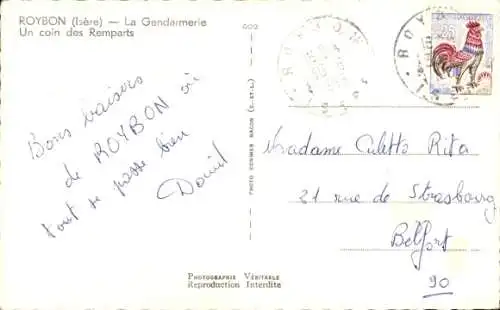 ROYBON (Isère) — La Gendarmerie
Un coin des Remparts
Bons baisers
de ROYBON où
tout se passe bien
Daniel
PHOTO COMBIER MACON (S.-ET-L.)
Madame Culetto Rita
21 rue de Strasbourg
Belfort
90
PHOTOGRAPHIE VÉRITABLE
Reproduction Interdite